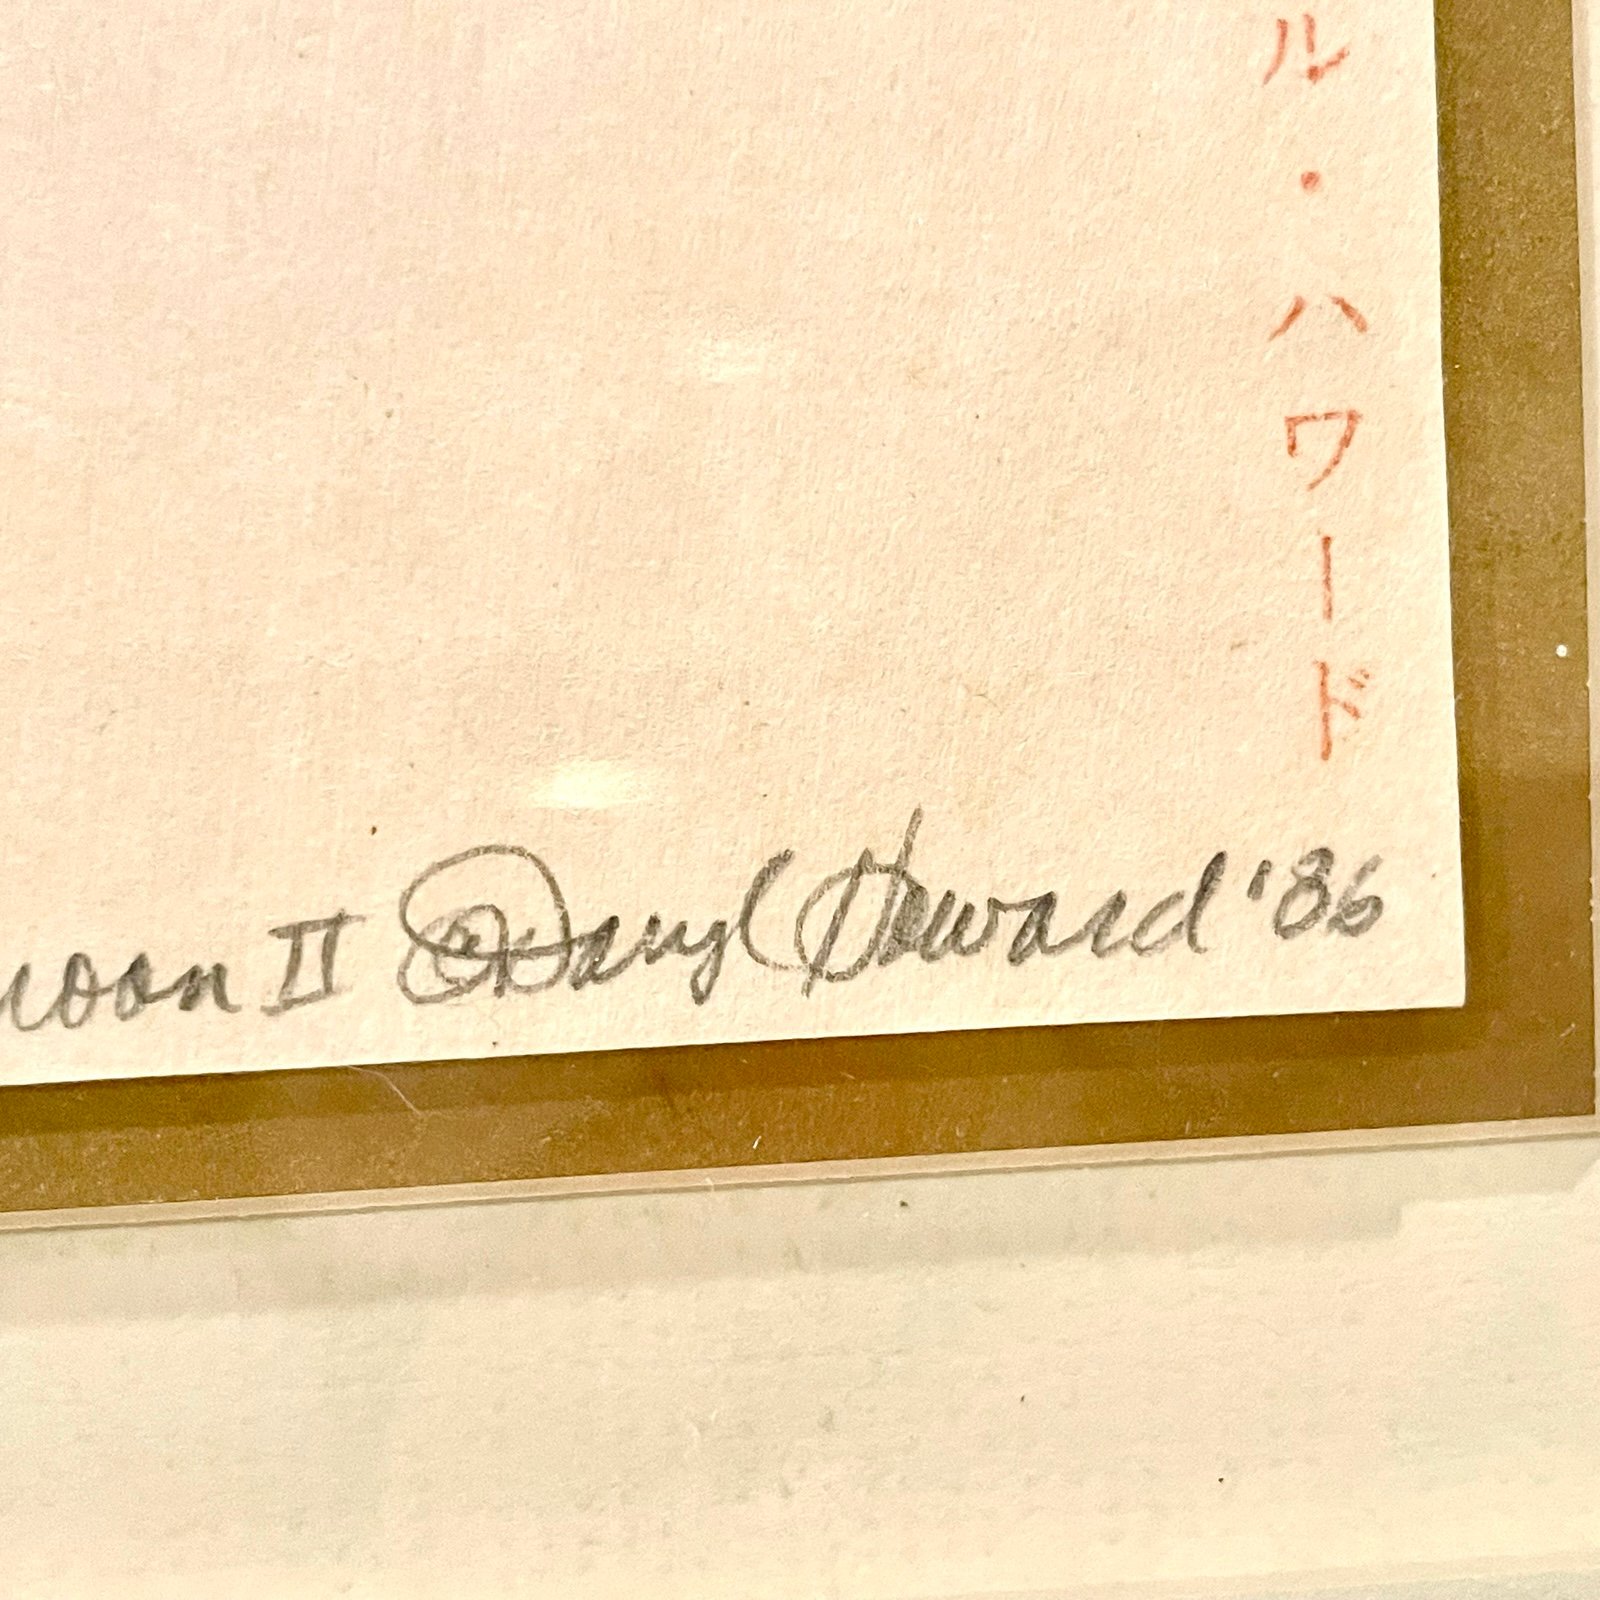 ル・ハワード
II Daryl Howard '86